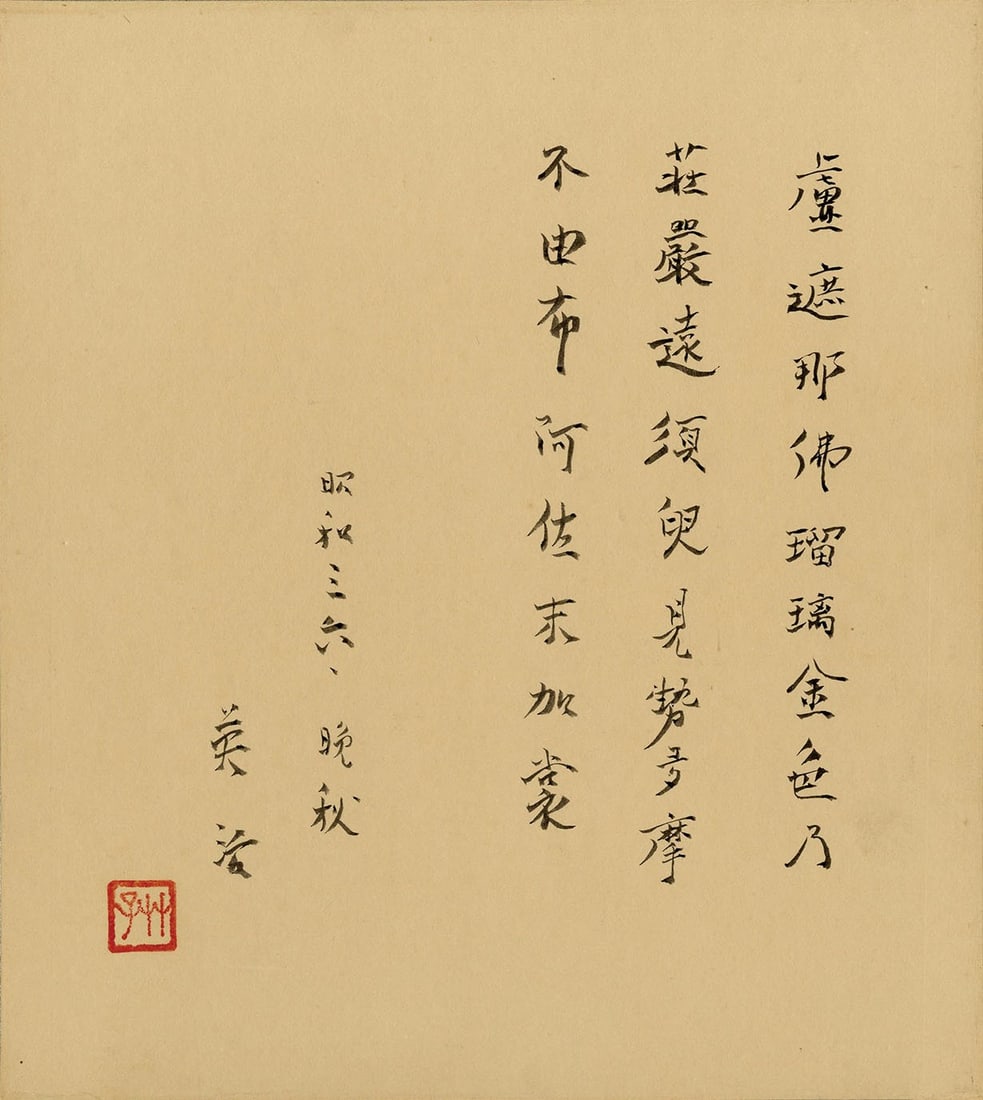 盧遮那佛瑠璃金色乃
莊嚴遠須臾見勢多摩
不由布阿佐末加裳
昭和三六、晩秋
英治